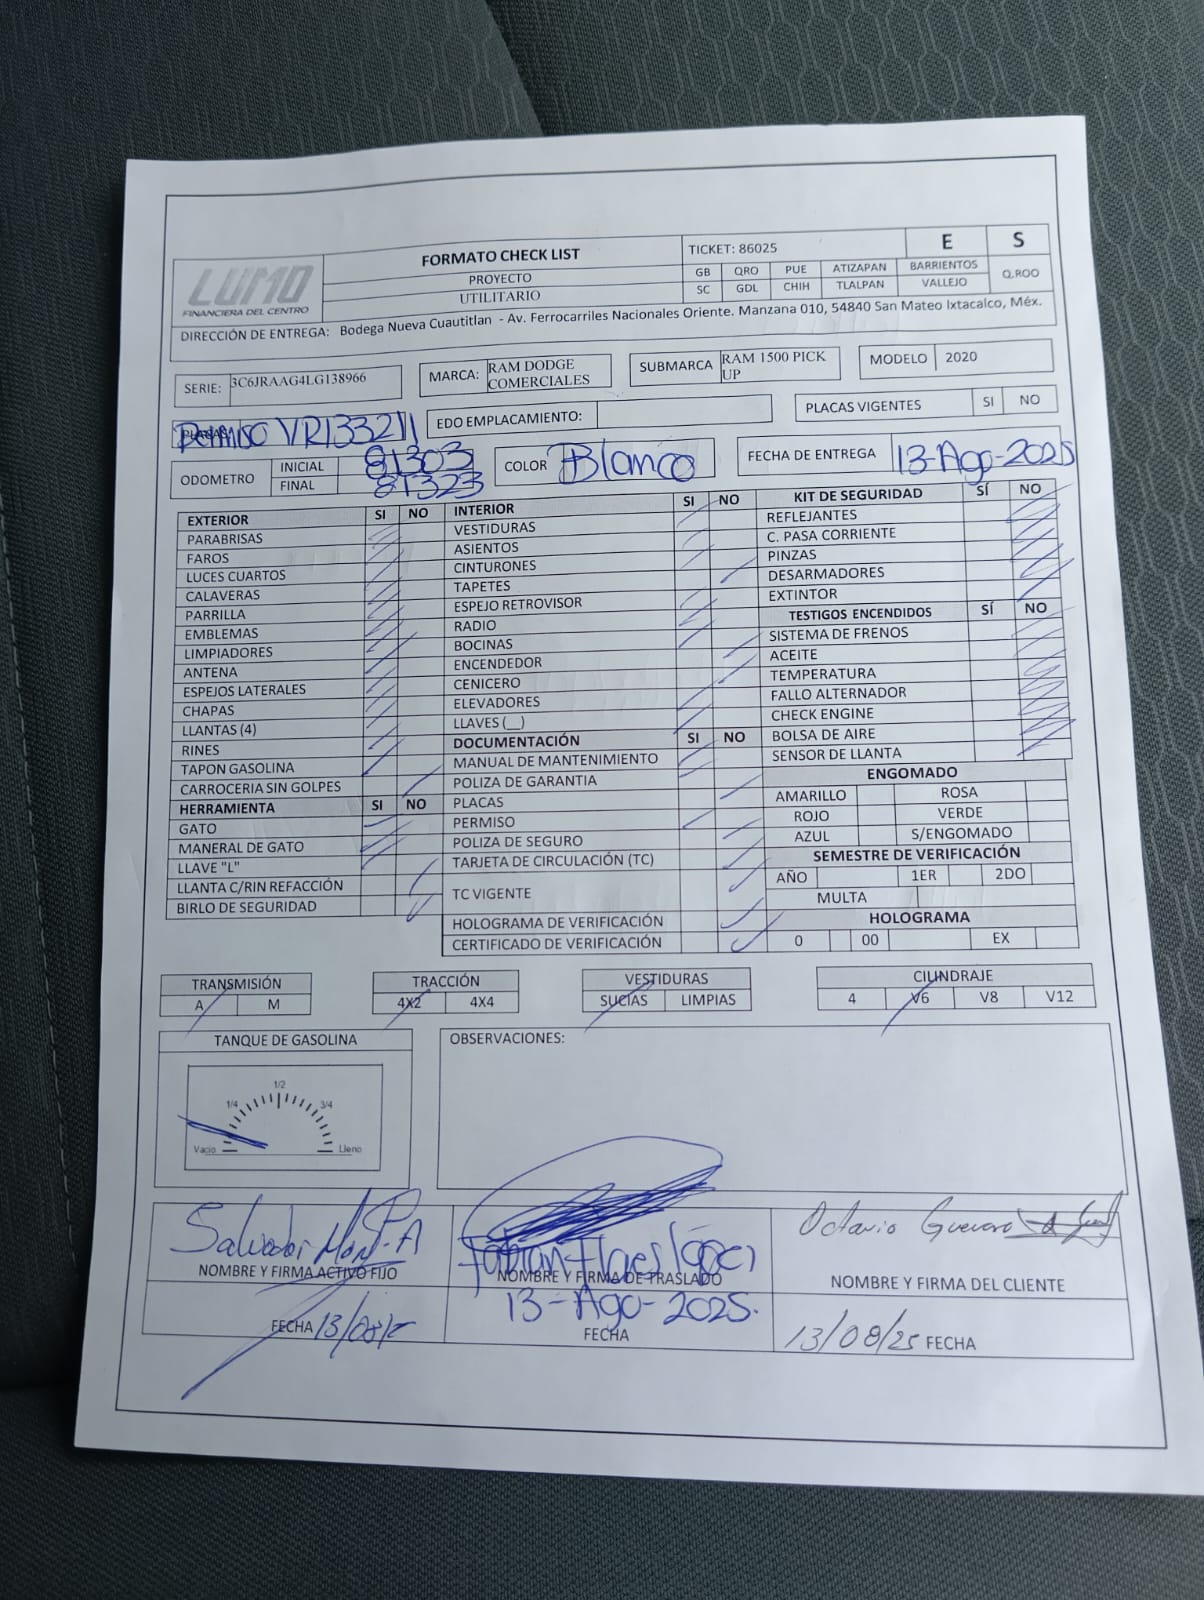 LUMO
FINANCIERA DEL CENTRO
FORMATO CHECK LIST
PROYECTO
UTILITARIO
TICKET: 86025
E
S
GB QRO PUE ATIZAPAN BARRIENTOS Q.ROO
SC GDL CHIH TLALPAN VALLEJO
DIRECCIÓN DE ENTREGA: Bodega Nueva Cuautitlan - Av. Ferrocarriles Nacionales Oriente. Manzana 010, 54840 San Mateo Ixtacalco, Méx.
SERIE: 3C6JRAAG4LG138966
MARCA: RAM DODGE COMERCIALES
SUBMARCA RAM 1500 PICK UP
MODELO 2020
PLACAS: Permiso VR133211
EDO EMPLACAMIENTO:
PLACAS VIGENTES SI NO
ODOMETRO
INICIAL 81303
FINAL 81323
COLOR Blanco
FECHA DE ENTREGA 13-Ago-2025
EXTERIOR SI NO
PARABRISAS
FAROS
LUCES CUARTOS
CALAVERAS
PARRILLA
EMBLEMAS
LIMPIADORES
ANTENA
ESPEJOS LATERALES
CHAPAS
LLANTAS (4)
RINES
TAPON GASOLINA
CARROCERIA SIN GOLPES
HERRAMIENTA SI NO
GATO
MANERAL DE GATO
LLAVE "L"
LLANTA C/RIN REFACCIÓN
BIRLO DE SEGURIDAD
INTERIOR SI NO
VESTIDURAS
ASIENTOS
CINTURONES
TAPETES
ESPEJO RETROVISOR
RADIO
BOCINAS
ENCENDEDOR
CENICERO
ELEVADORES
LLAVES (__)
DOCUMENTACIÓN SI NO
MANUAL DE MANTENIMIENTO
POLIZA DE GARANTIA
PLACAS
PERMISO
POLIZA DE SEGURO
TARJETA DE CIRCULACIÓN (TC)
TC VIGENTE
HOLOGRAMA DE VERIFICACIÓN
CERTIFICADO DE VERIFICACIÓN
KIT DE SEGURIDAD SÍ NO
REFLEJANTES
C. PASA CORRIENTE
PINZAS
DESARMADORES
EXTINTOR
TESTIGOS ENCENDIDOS SÍ NO
SISTEMA DE FRENOS
ACEITE
TEMPERATURA
FALLO ALTERNADOR
CHECK ENGINE
BOLSA DE AIRE
SENSOR DE LLANTA
ENGOMADO
AMARILLO ROSA
ROJO VERDE
AZUL S/ENGOMADO
SEMESTRE DE VERIFICACIÓN
AÑO 1ER 2DO
MULTA
HOLOGRAMA
0 00 EX
TRANSMISIÓN
A M
TRACCIÓN
4X2 4X4
VESTIDURAS
SUCIAS LIMPIAS
CILINDRAJE
4 V6 V8 V12
TANQUE DE GASOLINA
1/2
1/4 3/4
Vacio Lleno
OBSERVACIONES:
Salvador
NOMBRE Y FIRMA ACTIVO FIJO
FECHA 13/08/
Fabian
NOMBRE Y FIRMA DE TRASLADO
13-Ago-2025.
FECHA
Octavio Guevara
NOMBRE Y FIRMA DEL CLIENTE
13/08/25 FECHA